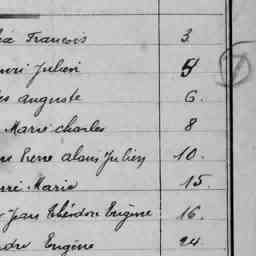 François 3.
Julien 4
auguste 6.
Marie charles 8
Pierre alain Julien 10.
Marie 15.
Jean théodore Eugène 16.
Eugène 24.